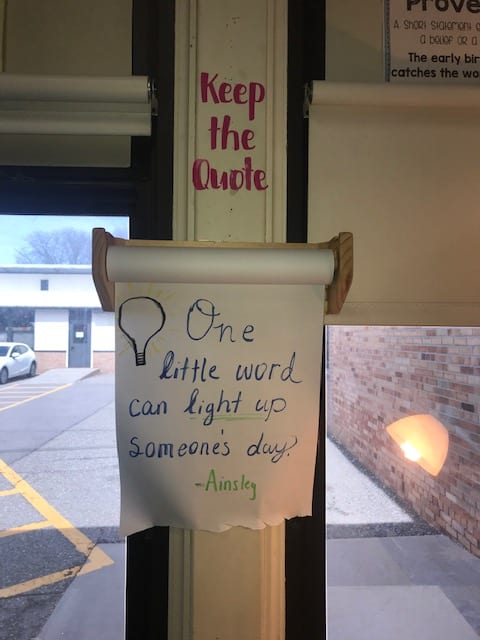 Prove
A Short Statement
a belief or a
The early bir
catches the wo
Keep
the
Quote
One
little word
can light up
someone's day?
-Ainsley